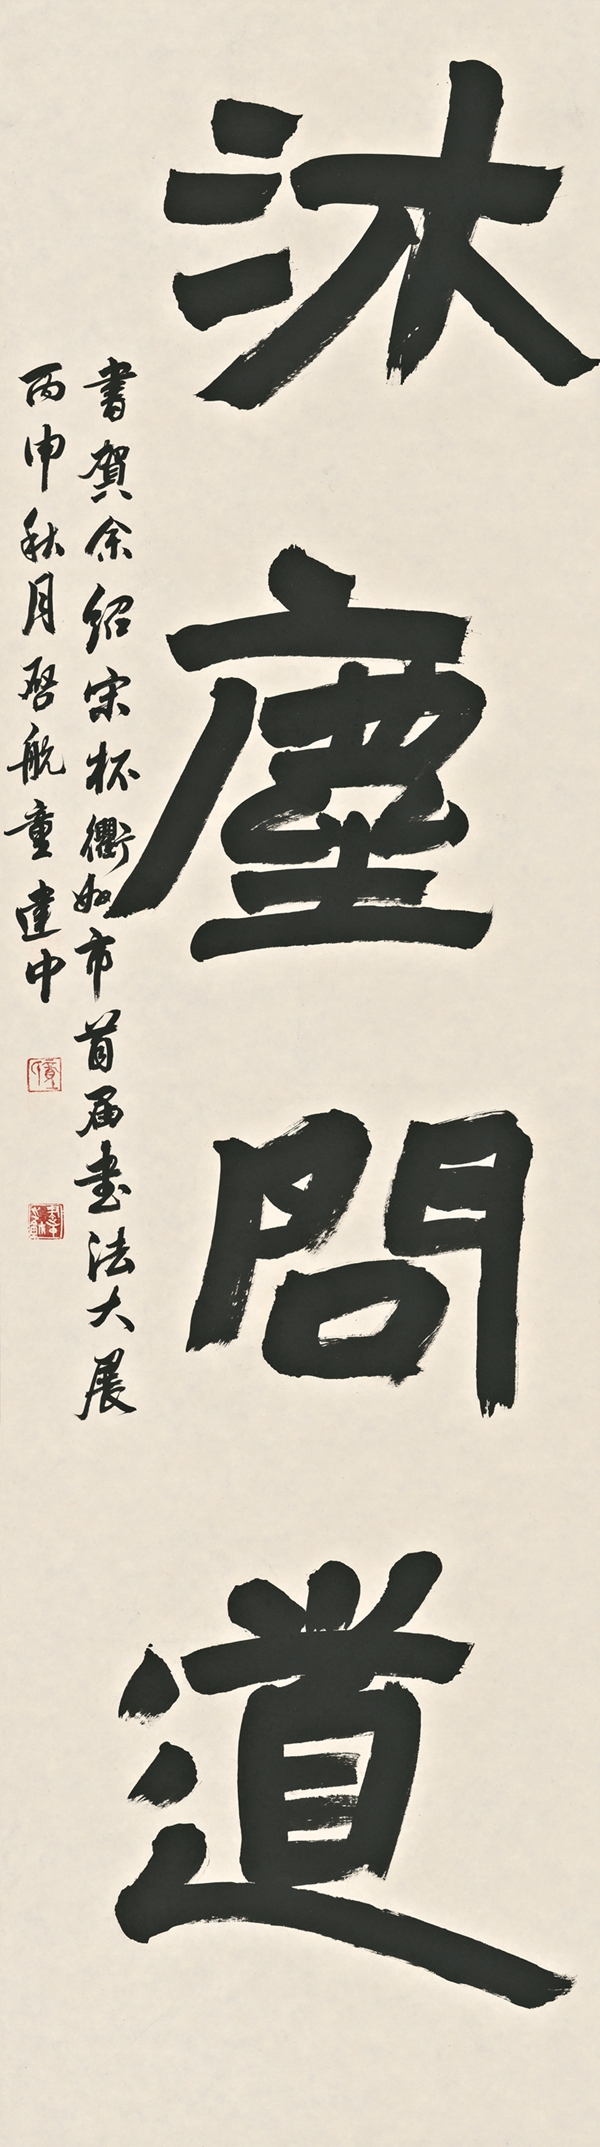 沐塵問道
書賀余紹宋杯衢州市首届书法大展
丙申秋月啓航童建中